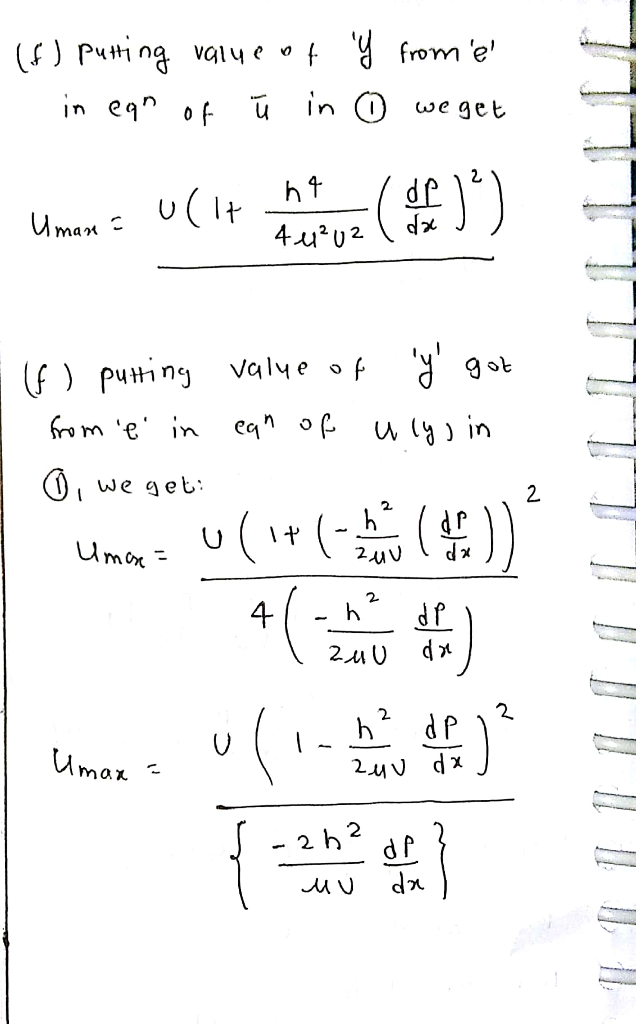 (f) putting value of 'y from 'e'
in eqn of ū in ① we get
Umax = U(1+ h⁴/4μ²U² (dP/dx)²)
(f) putting value of 'y' got
from 'e' in eqn of u(y) in
①, we get:
Umax = U(1+(-h²/2μU (dP/dx))²
4(-h²/2μU dP/dx)
Umax = U(1-h²/2μU dP/dx)²
{-2h²/μU dP/dx}